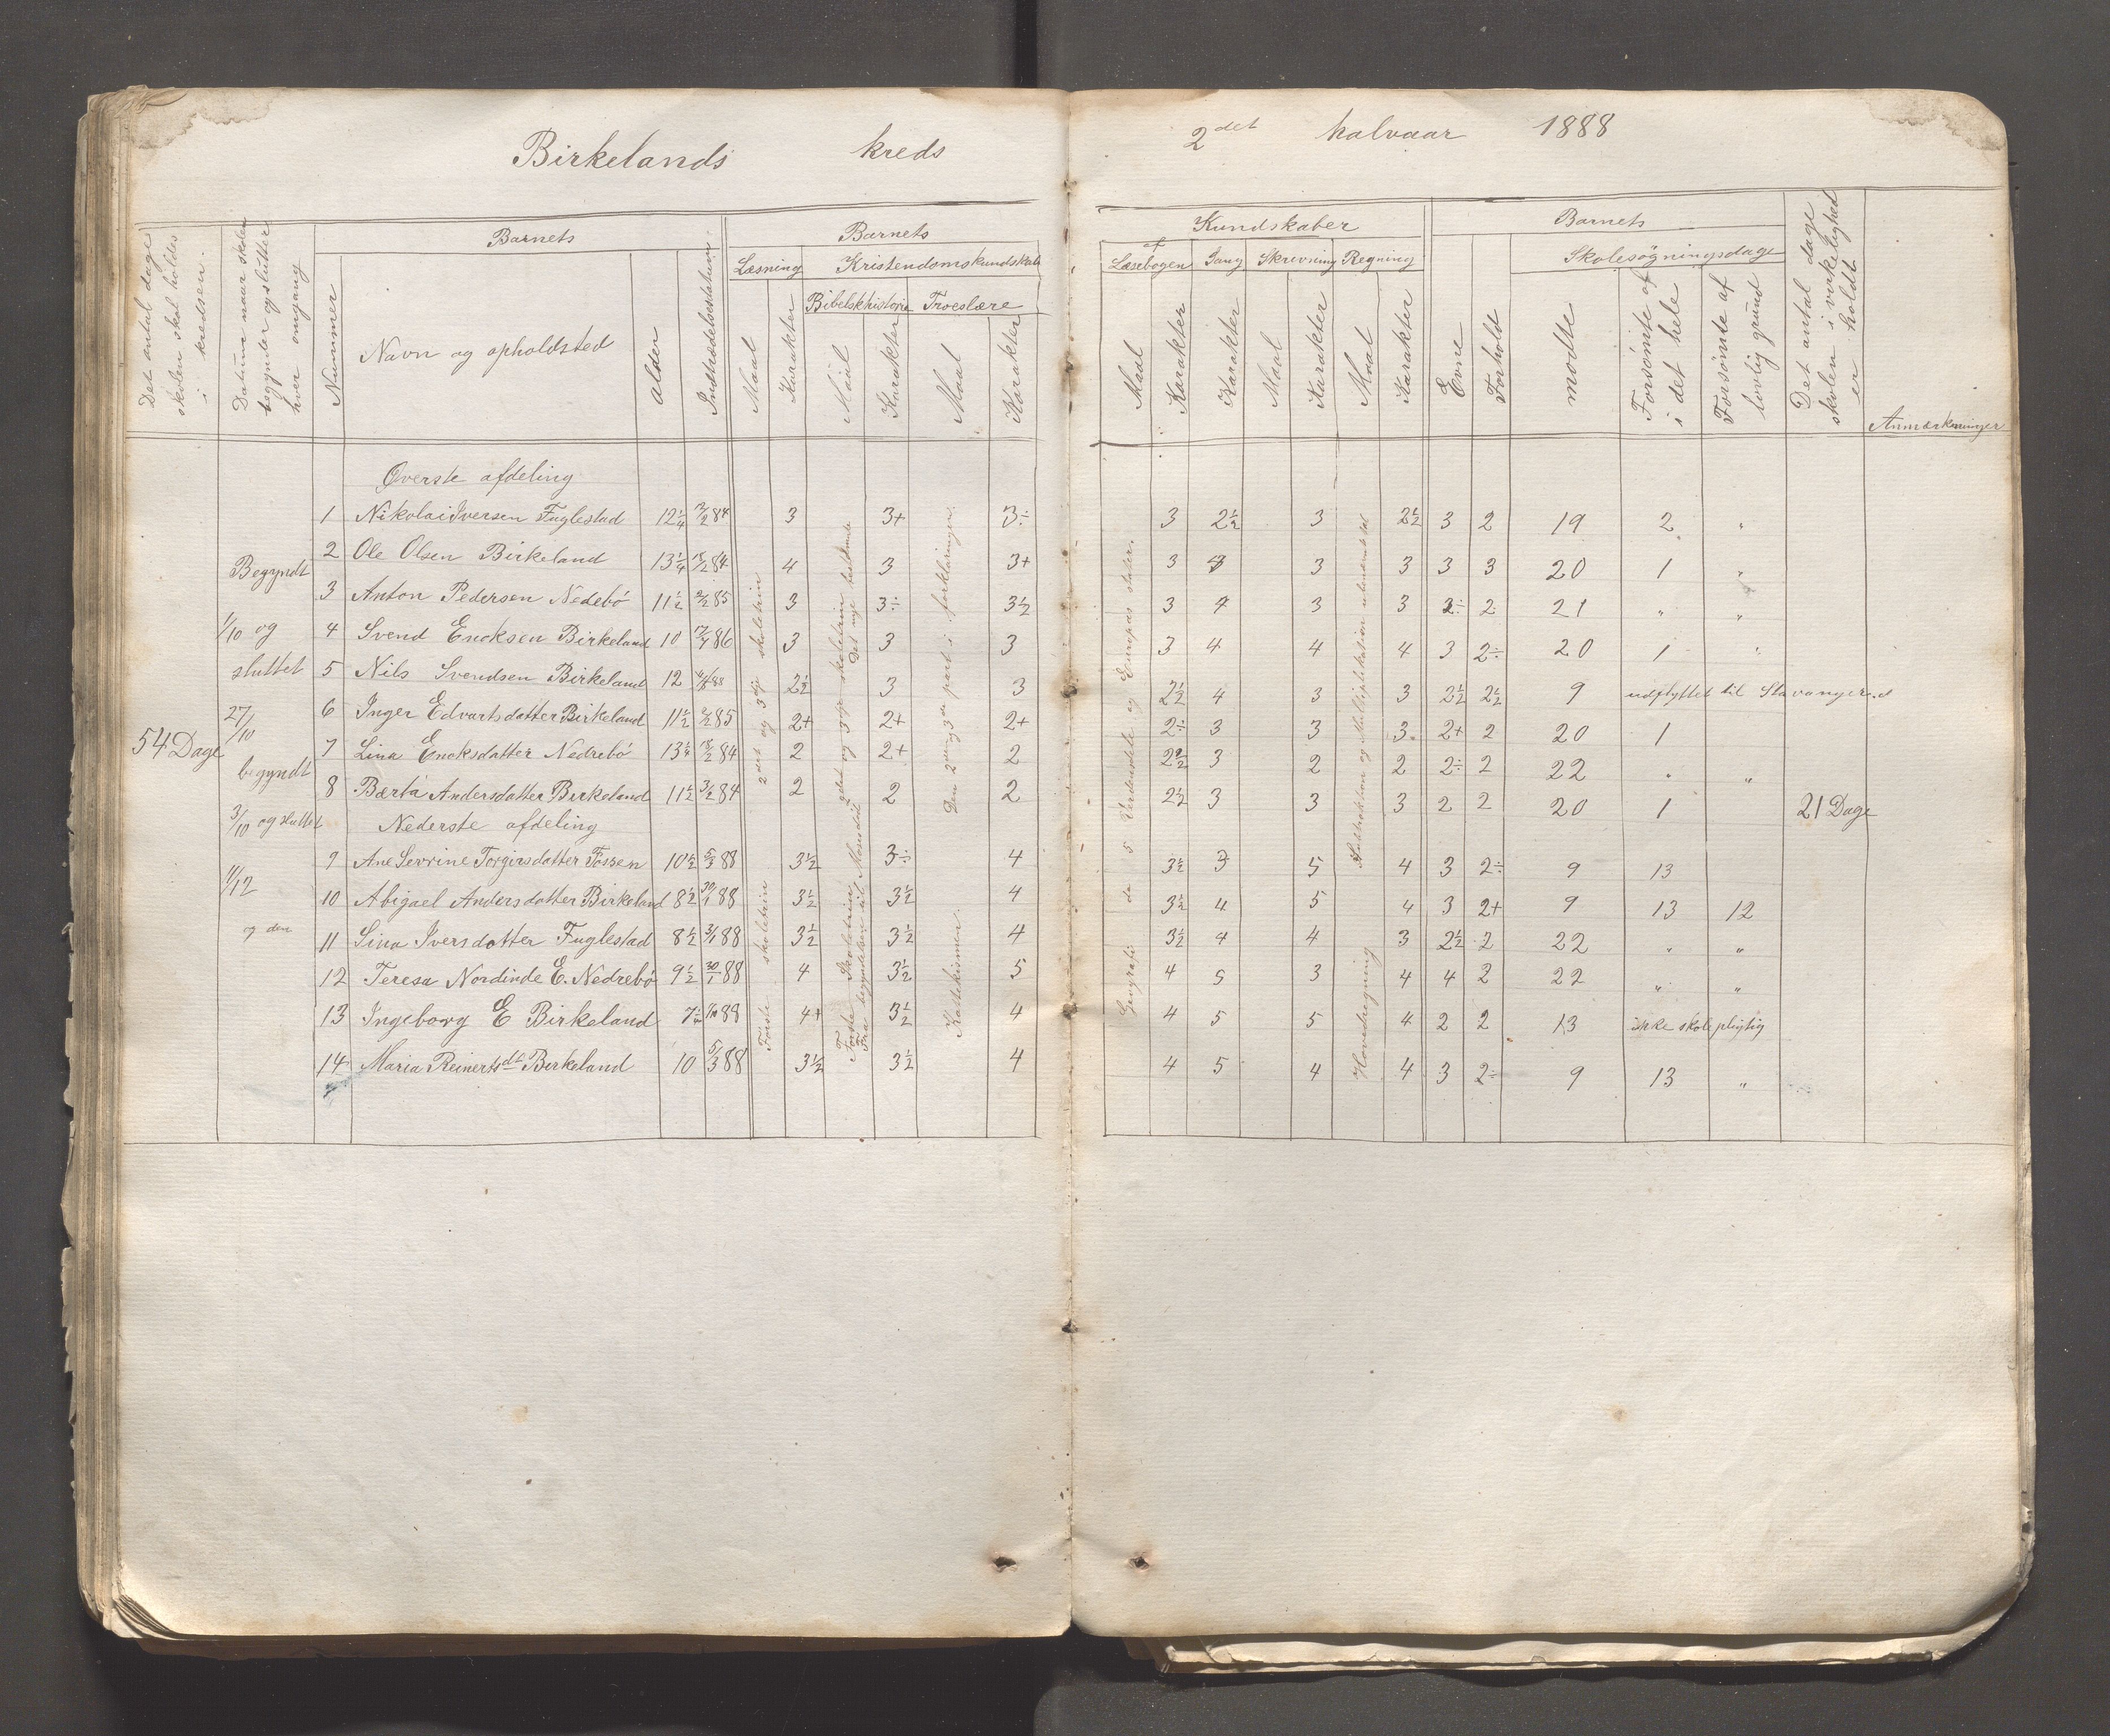 Birkelands kreds
2det halvaar 1888
Det antal dage skolen skal holdes i kredsen.
Datum naar skolen begynder og slutter hver omgang
Barnets
Nummer
Navn og opholdsted
Alder
Indtrædelsesdatum.
Barnets
Læsning
Maal
Karakter
Kristendomskundskab
Bibelskhistorie
Maal
Karakter
Troeslære
Maal
Karakter
Kundskaber
Læsebogen
Maal
Karakter
Sang
Karakter
Skrivning
Maal
Karakter
Regning
Maal
Karakter
Barnets
Evne
Forhold
Skolesøgningsdage
mødte
Forsømte af i det hele
Forsømte af lovlig grund
Det antal dage skolen i virkelighed er holdt
Anmærkninger
54 Dage
Begyndt
1/10 og
sluttet
27/10
begyndt
3/10 og sluttet
11/12
og den
Øverste afdeling
1 Nikolai Iversen Fuglestad 12 1/4 84 3 3+ 3÷ 3 2 1/2 3 2 1/2 3 2 19 2 "
2 Ole Olsen Birkeland 13 1/4 18/2 84 4 3 3+ 3 3 3 3 3 3 20 1 "
3 Anton Pedersen Nedebø 11 1/2 2/2 85 3 3÷ 3 1/2 3 4 3 3 2÷ 2 21 " "
4 Svend Encksen Birkeland 10 86 3 3 3 3 4 4 4 3 2÷ 20 1 "
5 Nils Svendsen Birkeland 12 88 2 1/2 3 3 2 1/2 4 3 3 2 1/2 2 1/2 9 udflyttet til Stavanger
6 Inger Edvartsdatter Birkeland 11 1/2 2/2 85 2+ 2+ 2+ 2÷ 3 3 3 2+ 2 20 1
7 Lina Encksdatter Nedrebø 13 1/4 18/2 84 2 2+ 2 2 1/2 3 2 2 2÷ 2 22 " "
8 Bærta Andersdatter Birkeland 11 1/2 3/2 84 2 2 2 2 1/2 3 3 3 2 2 20 1 21 Dage
Nederste afdeling
9 Ane Serine Torgirsdatter Fossen 10 1/2 5/3 88 3 1/2 3÷ 4 3 1/2 3 5 4 3 2÷ 9 13
10 Abigael Andersdatter Birkeland 8 1/2 30/1 88 3 1/2 3 1/2 4 3 1/2 4 5 4 3 2+ 9 13 12
11 Sina Iversdatter Fuglestad 8 1/2 3/1 88 3 1/2 3 1/2 4 3 1/2 4 4 3 2 1/2 2 22 " "
12 Teresa Nordinde E. Nedrebø 9 1/2 30/1 88 4 3 1/2 5 4 5 3 4 4 2 22 " "
13 Ingeborg E Birkeland 7 1/4 1/10 88 4+ 3 1/2 4 4 5 5 4 2 2 13 ikke skolepligtig
14 Maria Reinertsdt Birkeland 10 5/3 88 3 1/2 3 1/2 4 4 5 4 4 3 2÷ 9 13 "
2det og 3dje skoletrin
Første skoletrin
2det og 3dje skoletrin Det nye testamente
Første Skoletrin
Fra begyndelsen til
Den 2den og 3die part i forklaringen.
Katekismen
Geografi de 5 Verdensdele og Europas stater.
Subtraktion og Multiplikation
Hovedregning